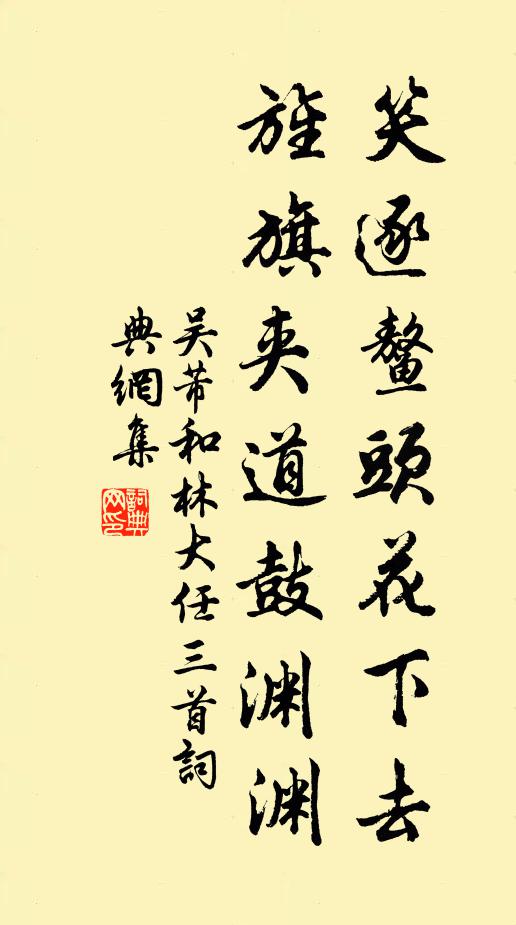 笑逐鳌頭花下去
旌旗夹道鼓渊渊
吴芾和林大任三首詞
典網集
詞典网印